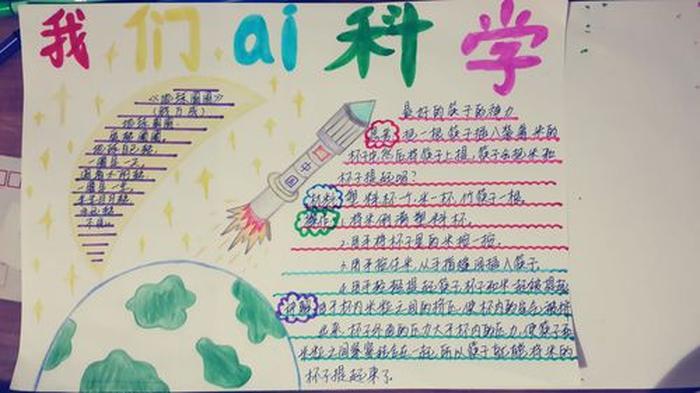 我们ai科学
地球自己转
一圈是一天
一圈是一年
中国
的筷子的神力
把一根筷子插入装着米的
杯子中,然后将筷子上提,筷子会把米和
杯子提起吗?
材料 塑料杯一个,米一杯,竹筷子一根。
操作 1.将米倒满塑料杯。
2.用手将杯子里的米按一按。
3.用手按住米,从手指缝间插入筷子。
4.用手轻轻提起筷子,杯子和米一起被提起
由于杯内米粒之间的挤压,使杯内的空气被挤
出来,杯子外面的压力大于杯内的压力,使筷子和
米粒之间紧紧结合在一起,所以筷子就能将米的
杯子提起来了.